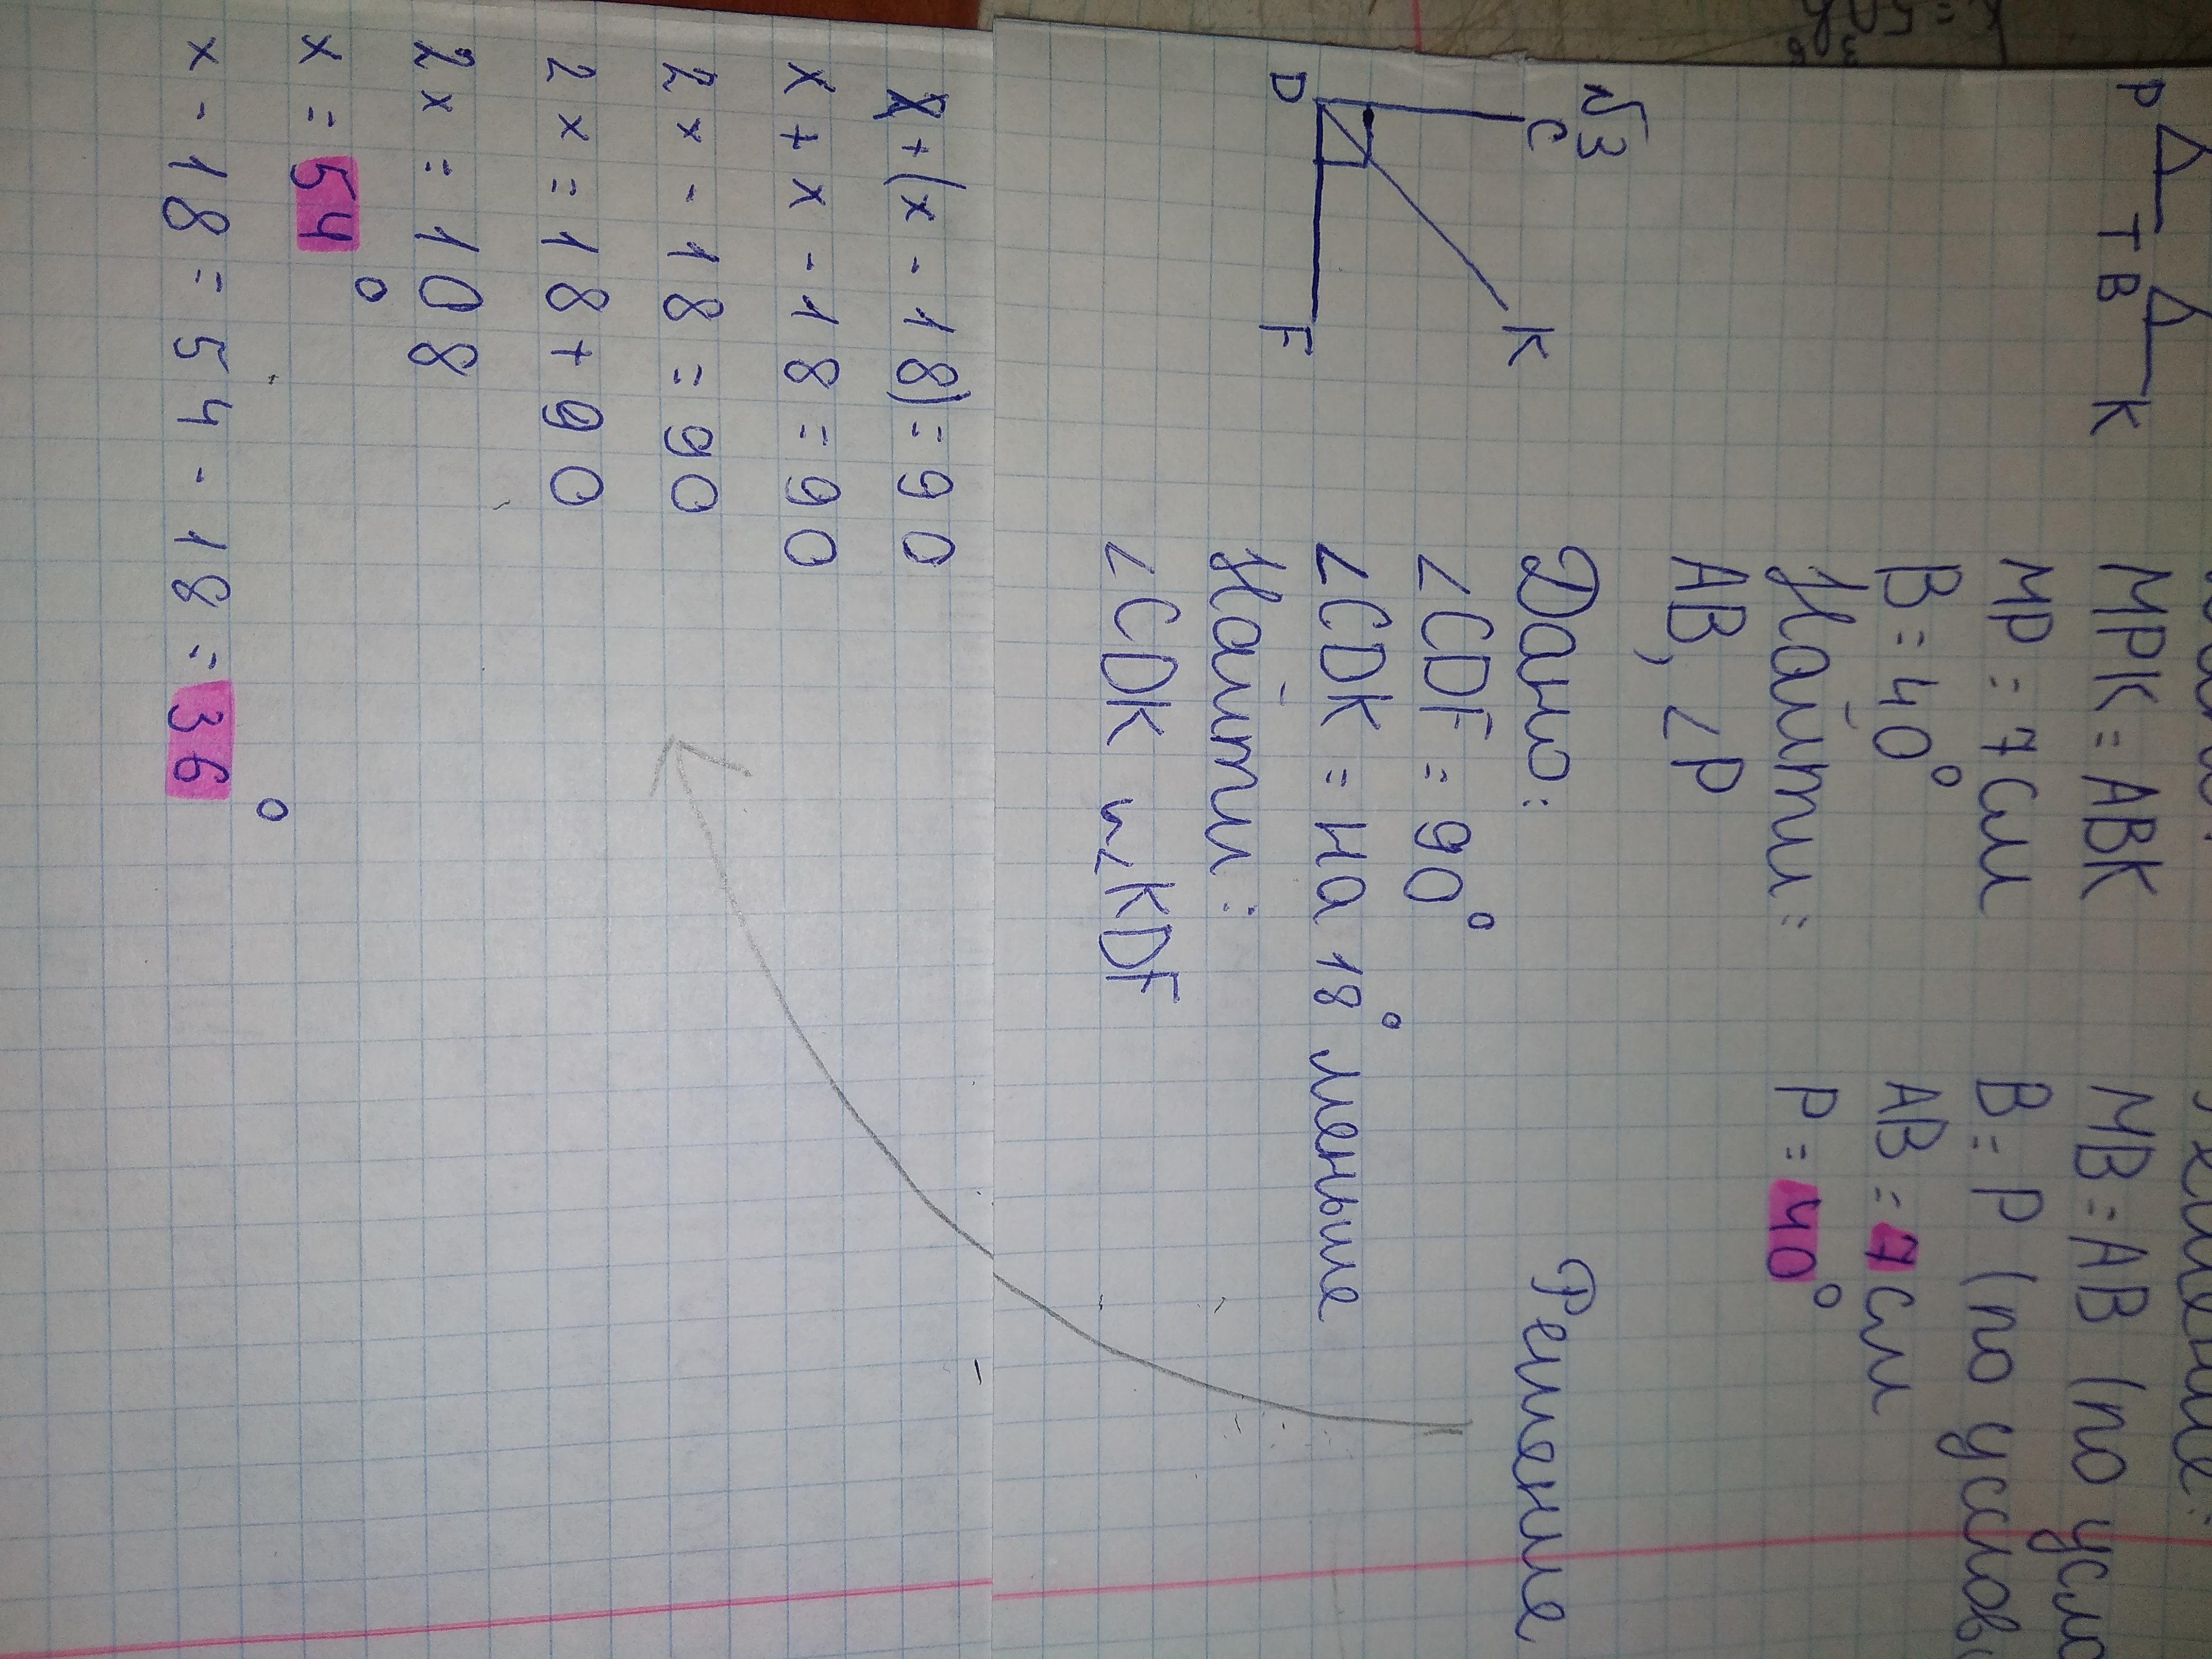 MPK = ABK
MP = 7см
B = 40°
Найти:
AB, ∠P
MB = AB (по
B = P (по
AB = 7 см
P = 40°
P
T B
K
√3
C
K
D
F
Дано:
∠CDF = 90°
∠CDK = на 18° меньше
Найти:
∠CDK и ∠KDF
Решение
x + (x - 18) = 90
x + x - 18 = 90
2x - 18 = 90
2x = 18 + 90
2x = 108
x = 54°
x - 18 = 54 - 18 = 36°